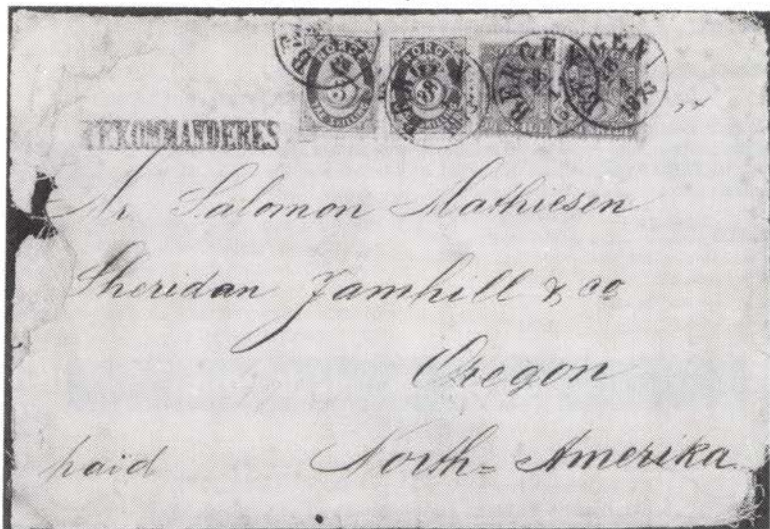 NORGE NORGE BERGEN BERGEN
1873
REKOMMANDERES
Mr Salomon Mathiesen
Sheridan Jamhill & co
Oregon
paid North=Amerika